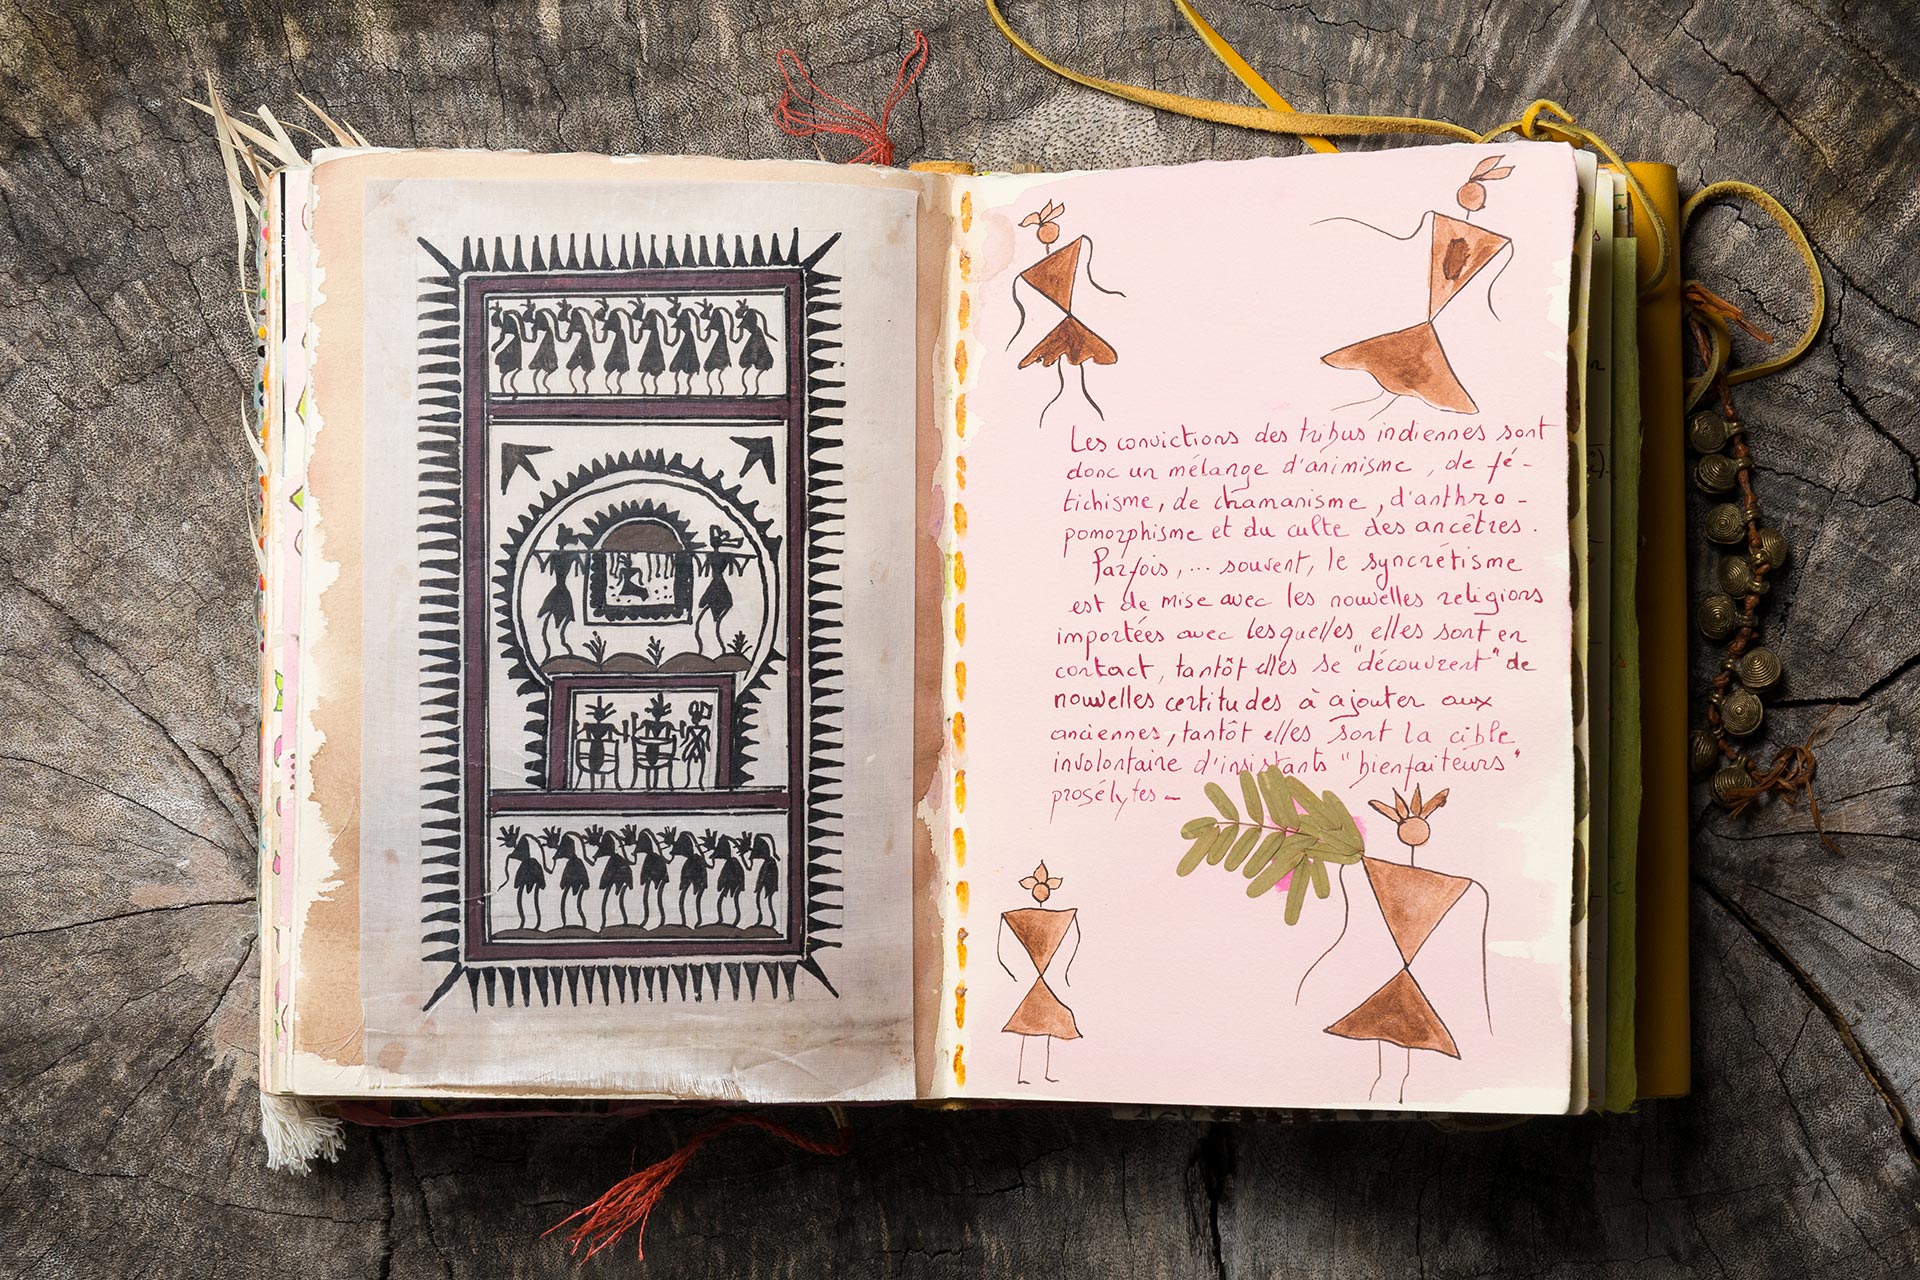 Les convictions des tribus indiennes sont
donc un mélange d'animisme, de fé-
tichisme, de chamanisme, d'anthro-
pomorphisme et du culte des ancêtres.
Parfois,... souvent, le syncrétisme
est de mise avec les nouvelles religions
importées avec lesquelles elles sont en
contact, tantôt elles se "découvrent" de
nouvelles certitudes à ajouter aux
anciennes, tantôt elles sont la cible
involontaire d'insistants "bienfaiteurs"
prosélytes -